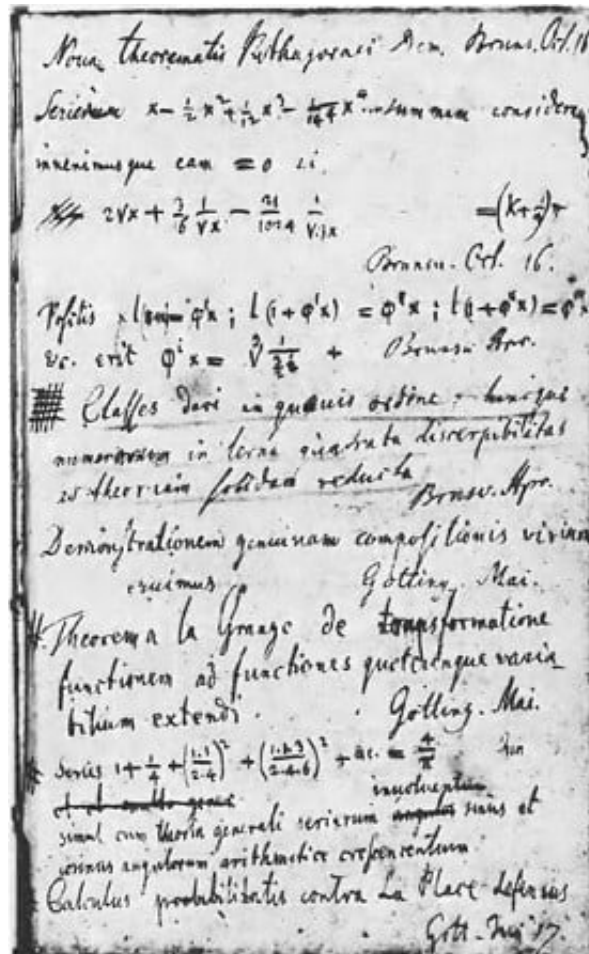 Nova theorematis Pithagoraei Dem. Bruns. Oct. 16
Serierum x − 1/2 x² + 1/12 x³ − 1/144 x⁴ ... summam consider
invenimusque eam = 0 si
2√x + 3/16 1/√x − 21/1024 1/√.3x = (k + 1/4)π
Brunsu. Oct. 16.
Positis l(1+x) = φ'x ; l(1 + φ'x) = φ''x ; l(1 + φ''x) = φ'''x
etc. erit φⁱx = ∛ 1/ +
Brunsu Apr.
Classes dari in quavis ordine; hincque
numerorum in terna quadrata discerpibilitas
ad theoriam solidam reducta
Brunsv. Apr.
Demonstrationem genuinam compositionis virium
eruimus
Götting. Mai.
Theorema la Grange de transformatione
functionem ad functiones quotcunque varia
bilium extendi.
Götting. Mai.
Series 1 + 1/4 + (1.1/2.4)² + (1.1.3/2.4.6)² + etc. = 4/π
simul cum theoria generali serierum involventum sinus et
cosinus angulorum arithmetice crescentium
Calculus probabilitatis contra La Place defensus
Gott. Jun 17.